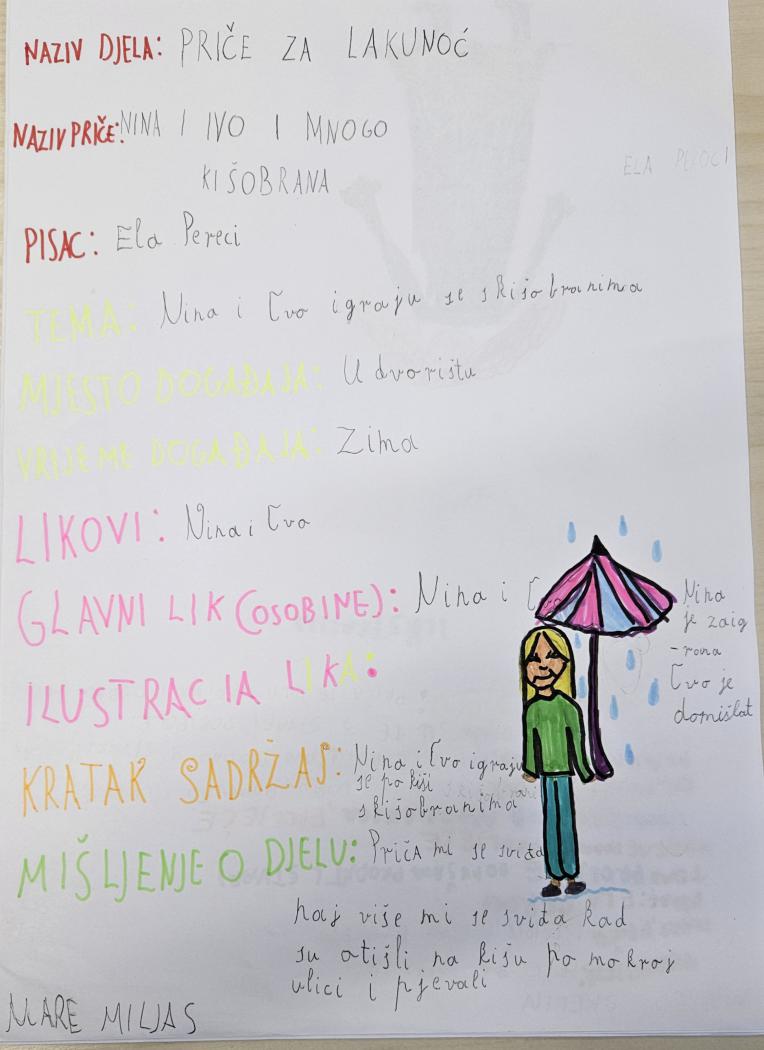 NAZIV DJELA: PRIČE ZA LAKUNOĆ
NAZIV PRIČE: NINA I IVO I MNOGO
KIŠOBRANA
ELA PEROCI
PISAC: Ela Pereci
TEMA: Nina i Ivo igraju se s kišobranima
MJESTO DOGAĐAJA: U dvorištu
VRIJEME DOGAĐAJA: Zima
LIKOVI: Nina i Ivo
GLAVNI LIK (OSOBINE): Nina i
Nina
je zaig
-rana
Ivo je
domišlat
ILUSTRACIJA LIKA:
KRATAK SADRŽAJ: Nina i Ivo igraju
se po kiši
s kišobranima
MIŠLJENJE O DJELU: Priča mi se sviđa
naj više mi se sviđa kad
su otišli na kišu po mokroj
ulici i pjevali
MARE MILJAS